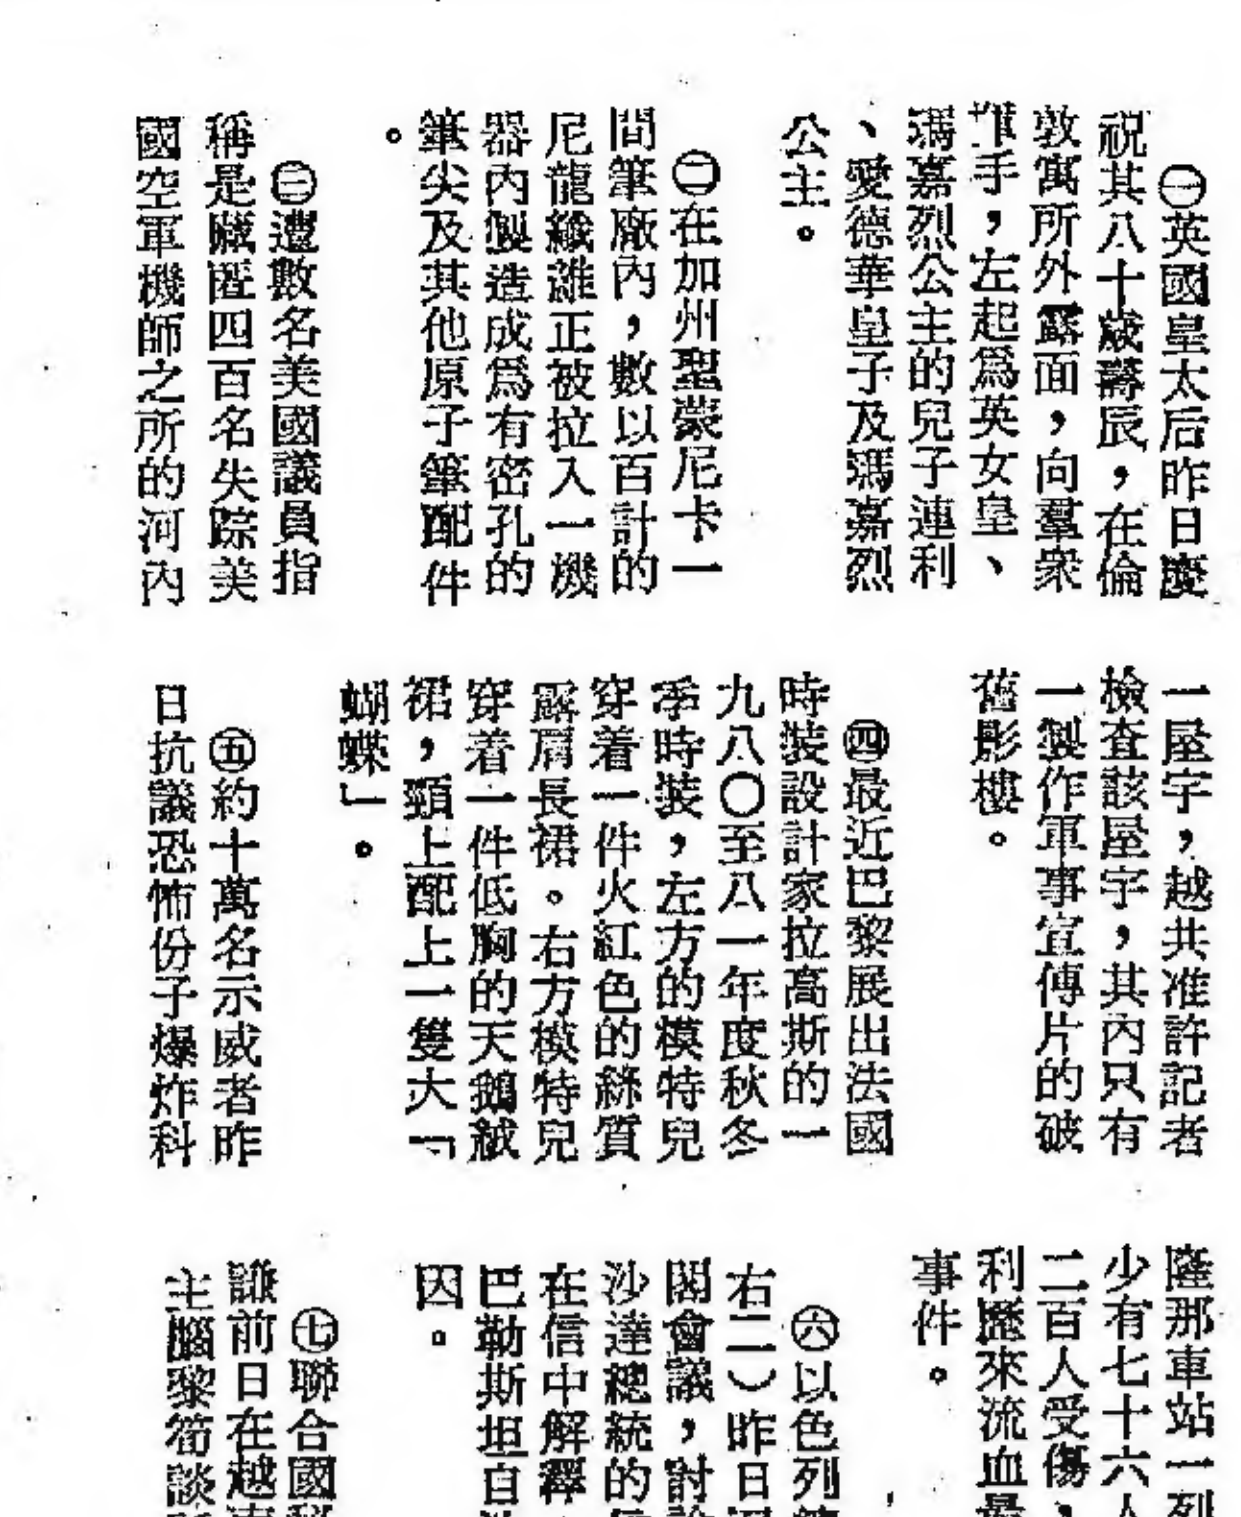 ㊀英國皇太后昨日慶
祝其八十歲壽辰，在倫
敦寓所外露面，向羣衆
揮手，左起爲英女皇、
瑪嘉烈公主的兒子連利
、愛德華皇子及瑪嘉烈
公主。
㊁在加州聖蒙尼卡一
間筆廠內，數以百計的
尼龍纖維正被拉入一機
器內製造成爲有密孔的
筆尖及其他原子筆配件
。
㊂遭數名美國議員指
稱是藏匿四百名失踪美
國空軍機師之所的河內
一屋宇，越共准許記者
檢查該屋宇，其內只有
一製作軍事宣傳片的破
舊影樓。
㊃最近巴黎展出法國
時裝設計家拉高斯的一
九八〇至八一年度秋冬
季時裝，左方的模特兒
穿着一件火紅色的絲質
露肩長裙。右方模特兒
穿着一件低胸的天鵝絨
裙，頸上配上一隻大「
蝴蝶」。
㊄約十萬名示威者昨
日抗議恐怖份子爆炸科
隆那車站一列
少有七十六人
二百人受傷，
利歷來流血最
事件。
㊅以色列總
右二）昨日
閣會議，討論
沙達總統的
在信中解釋
巴勒斯坦自治
因。
㊆聯合國
謙前日在越南
主腦黎筍談